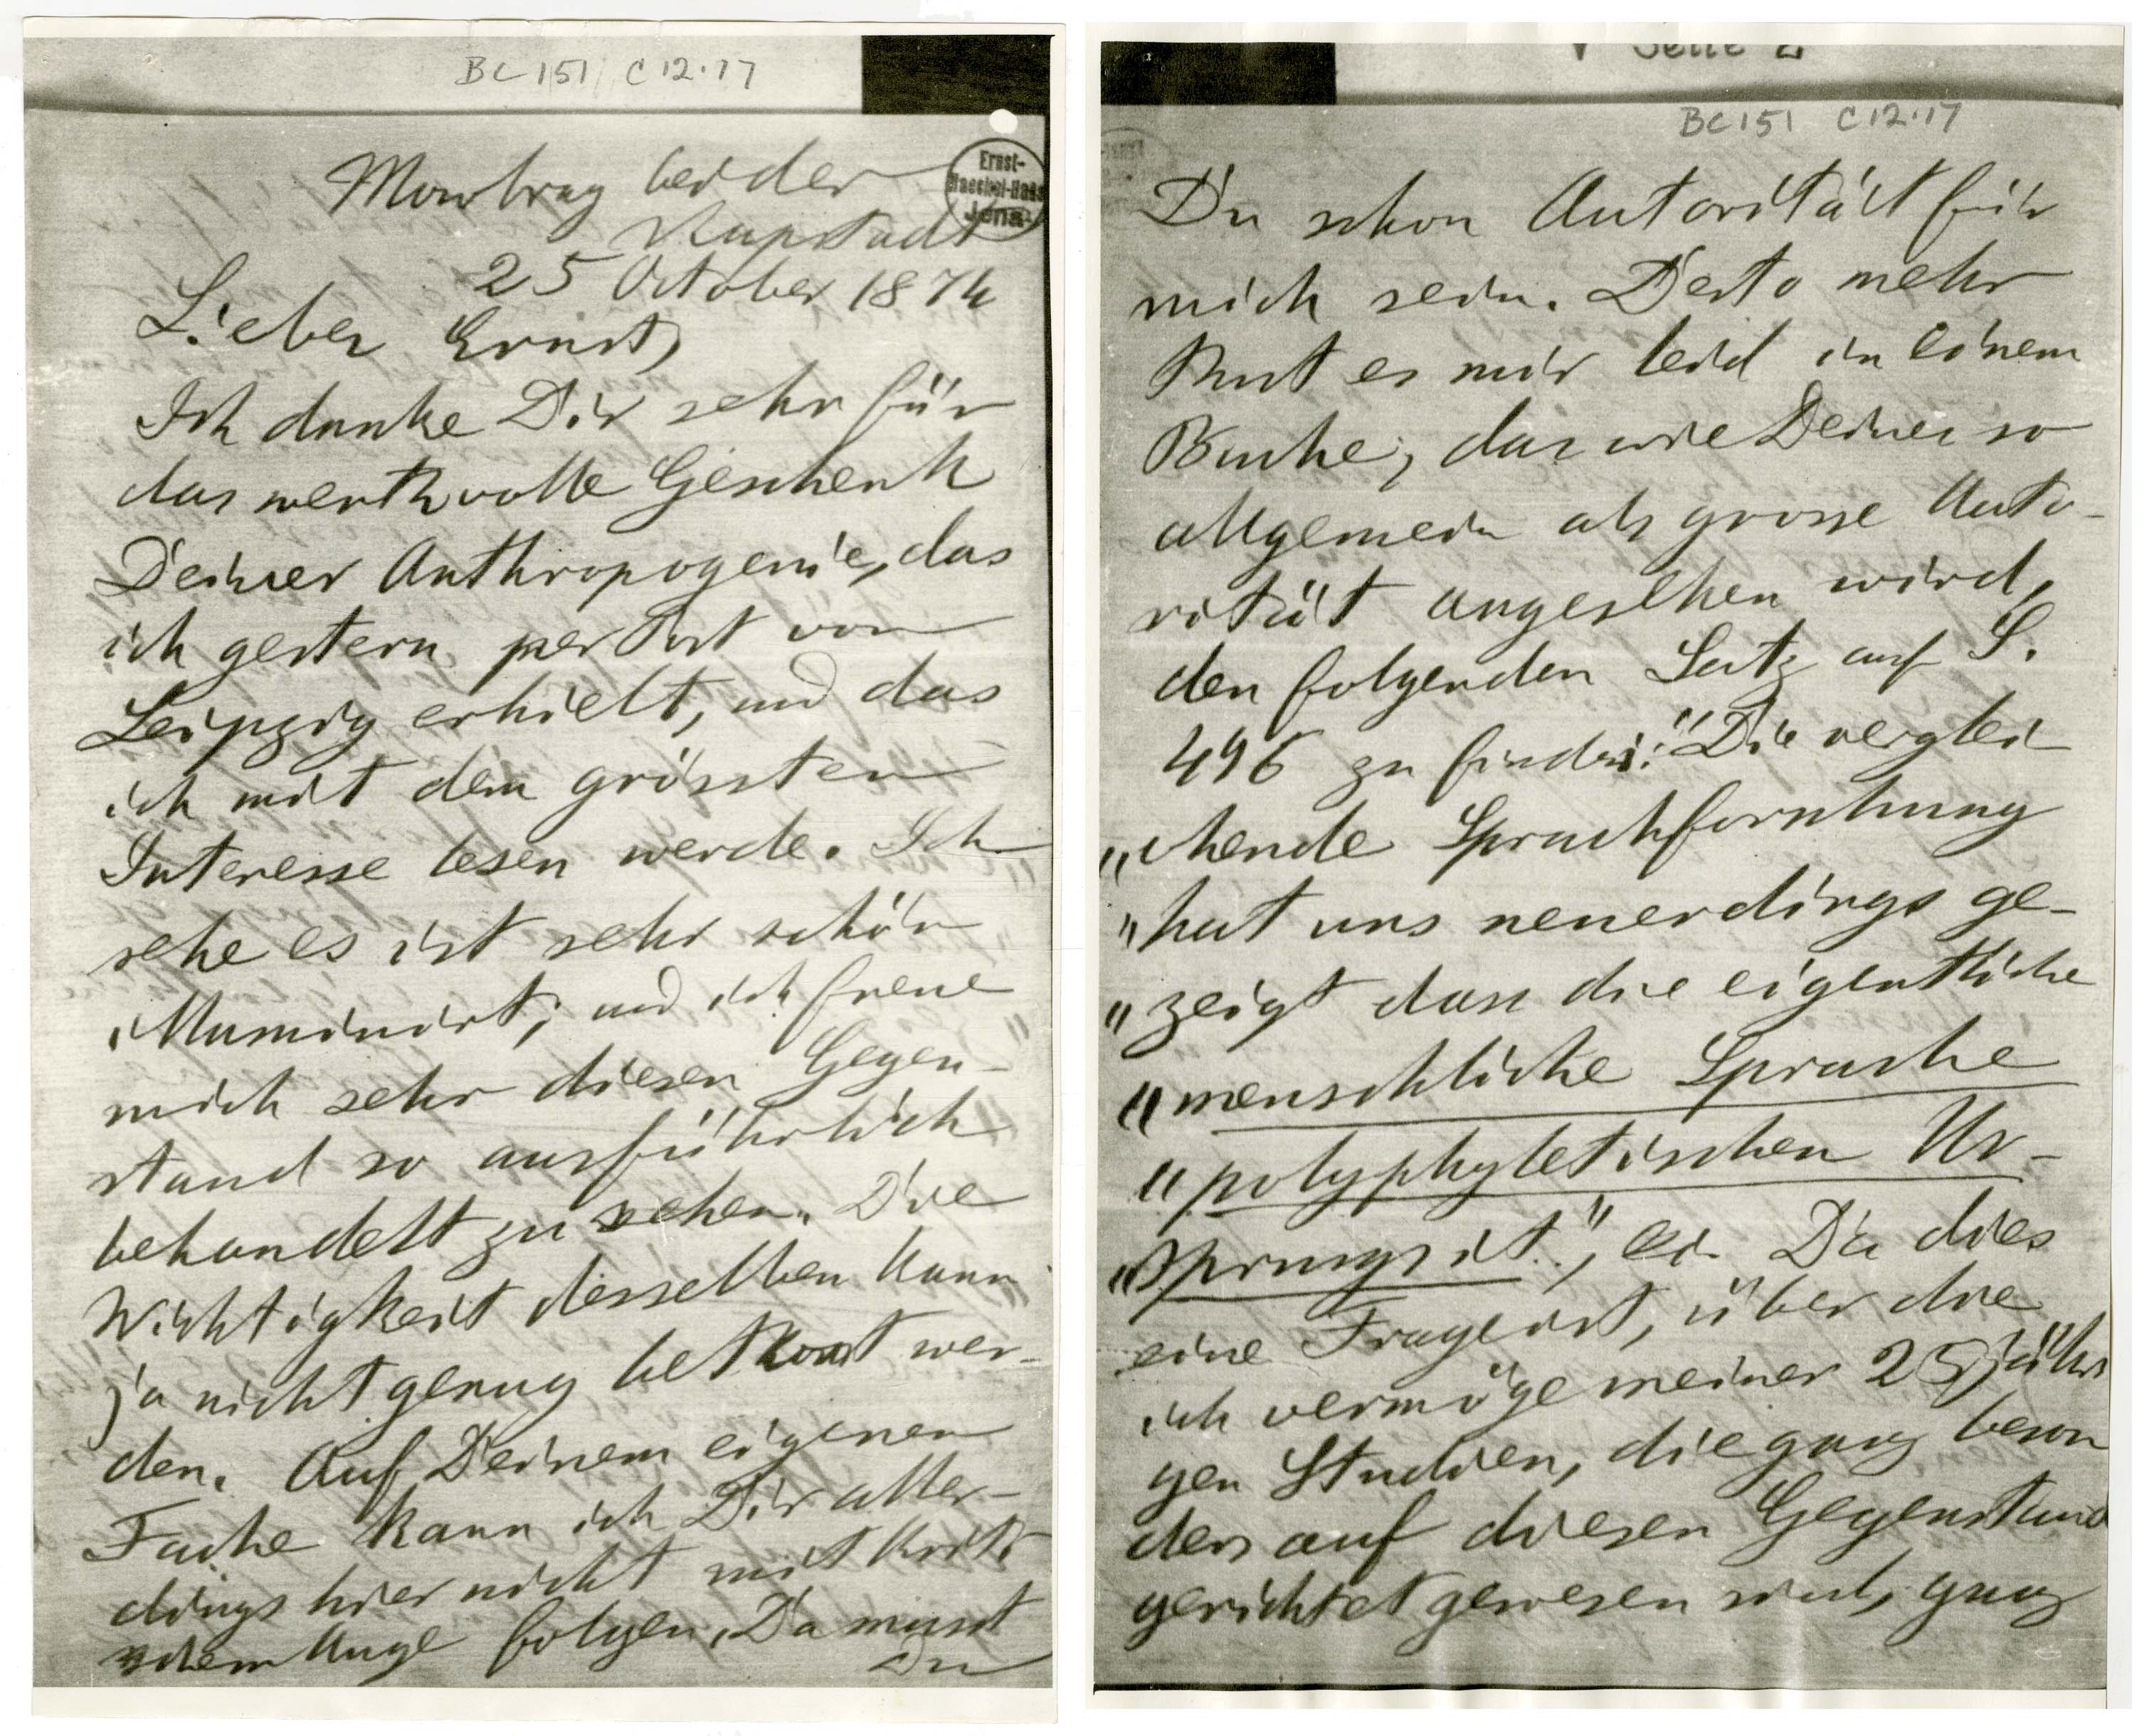 BC 151 C12.17
Ernst-
Haeckel-Haus
Jena
Mowbray bei der
Kapstadt
25 October 1874
Lieber Ernst,
Ich danke Dir sehr für
das werthvolle Geschenk
Deiner Anthropogenie, das
ich gestern per Post von
Leipzig erhielt, und das
ich mit dem grössten
Interesse lesen werde. Ich
sehe es ist sehr schön
illuminirt; und ich freue
mich sehr diesen Gegen-
stand so ausführlich
behandelt zu sehen. Die
Wichtigkeit desselben kann
ja nicht genug betont wer-
den. Auf Deinem eigenen
Fache kann ich Dir aller-
dings hier nicht mit kriti
schem Auge folgen. Da musst
Du
Seite 2
BC151 C12.17
Du schon Autorität für
mich sein. Desto mehr
thut es mir leid in einem
Buche, das wie Deines so
allgemein als grosse Auto-
rität angesehen wird,
den folgenden Satz auf S.
496 zu finden: "Die verglei
"chende Sprachforschung
"hat uns neuerdings ge-
"zeigt dass die eigentliche
"menschliche Sprache
"polyphyletischen Ur-
"sprungs ist.", Da dies
eine Frage ist, über die
ich vermöge meiner 25jähri
gen Studien, die ganz beson
ders auf diesen Gegenstand
gerichtet gewesen sind, ganz